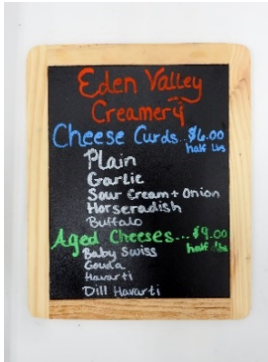 Eden Valley
Creamery
Cheese Curds...$6.00
half lbs
Plain
Garlic
Sour Cream + Onion
Horseradish
Buffalo
Aged Cheeses...$9.00
half lbs
Baby Swiss
Gouda
Havarti
Dill Havarti